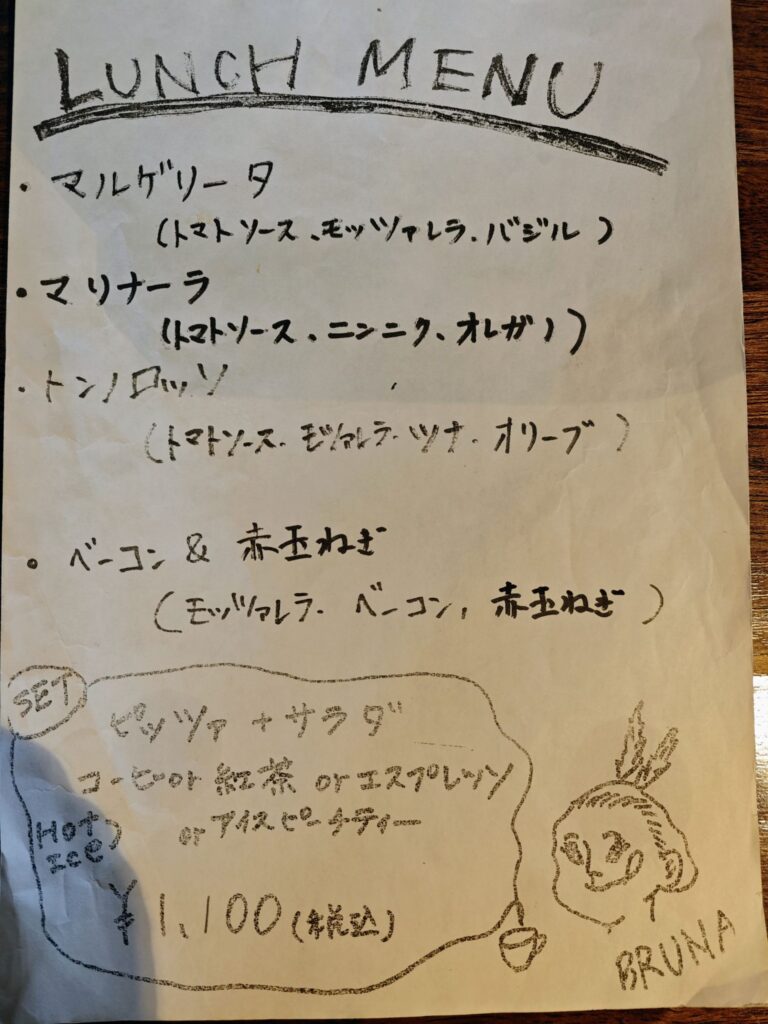 LUNCH MENU
・マルゲリータ
(トマトソース、モッツァレラ、バジル)
・マリナーラ
(トマトソース、ニンニク、オレガノ)
・トンノロッソ
(トマトソース、モッツァレラ、ツナ、オリーブ)
・ベーコン & 赤玉ねぎ
(モッツァレラ、ベーコン、赤玉ねぎ)
SET
ピッツァ + サラダ
コーヒー or 紅茶 or エスプレッソ
or アイスピーチティー
Hot
Ice
¥1,100 (税込)
BRUNA